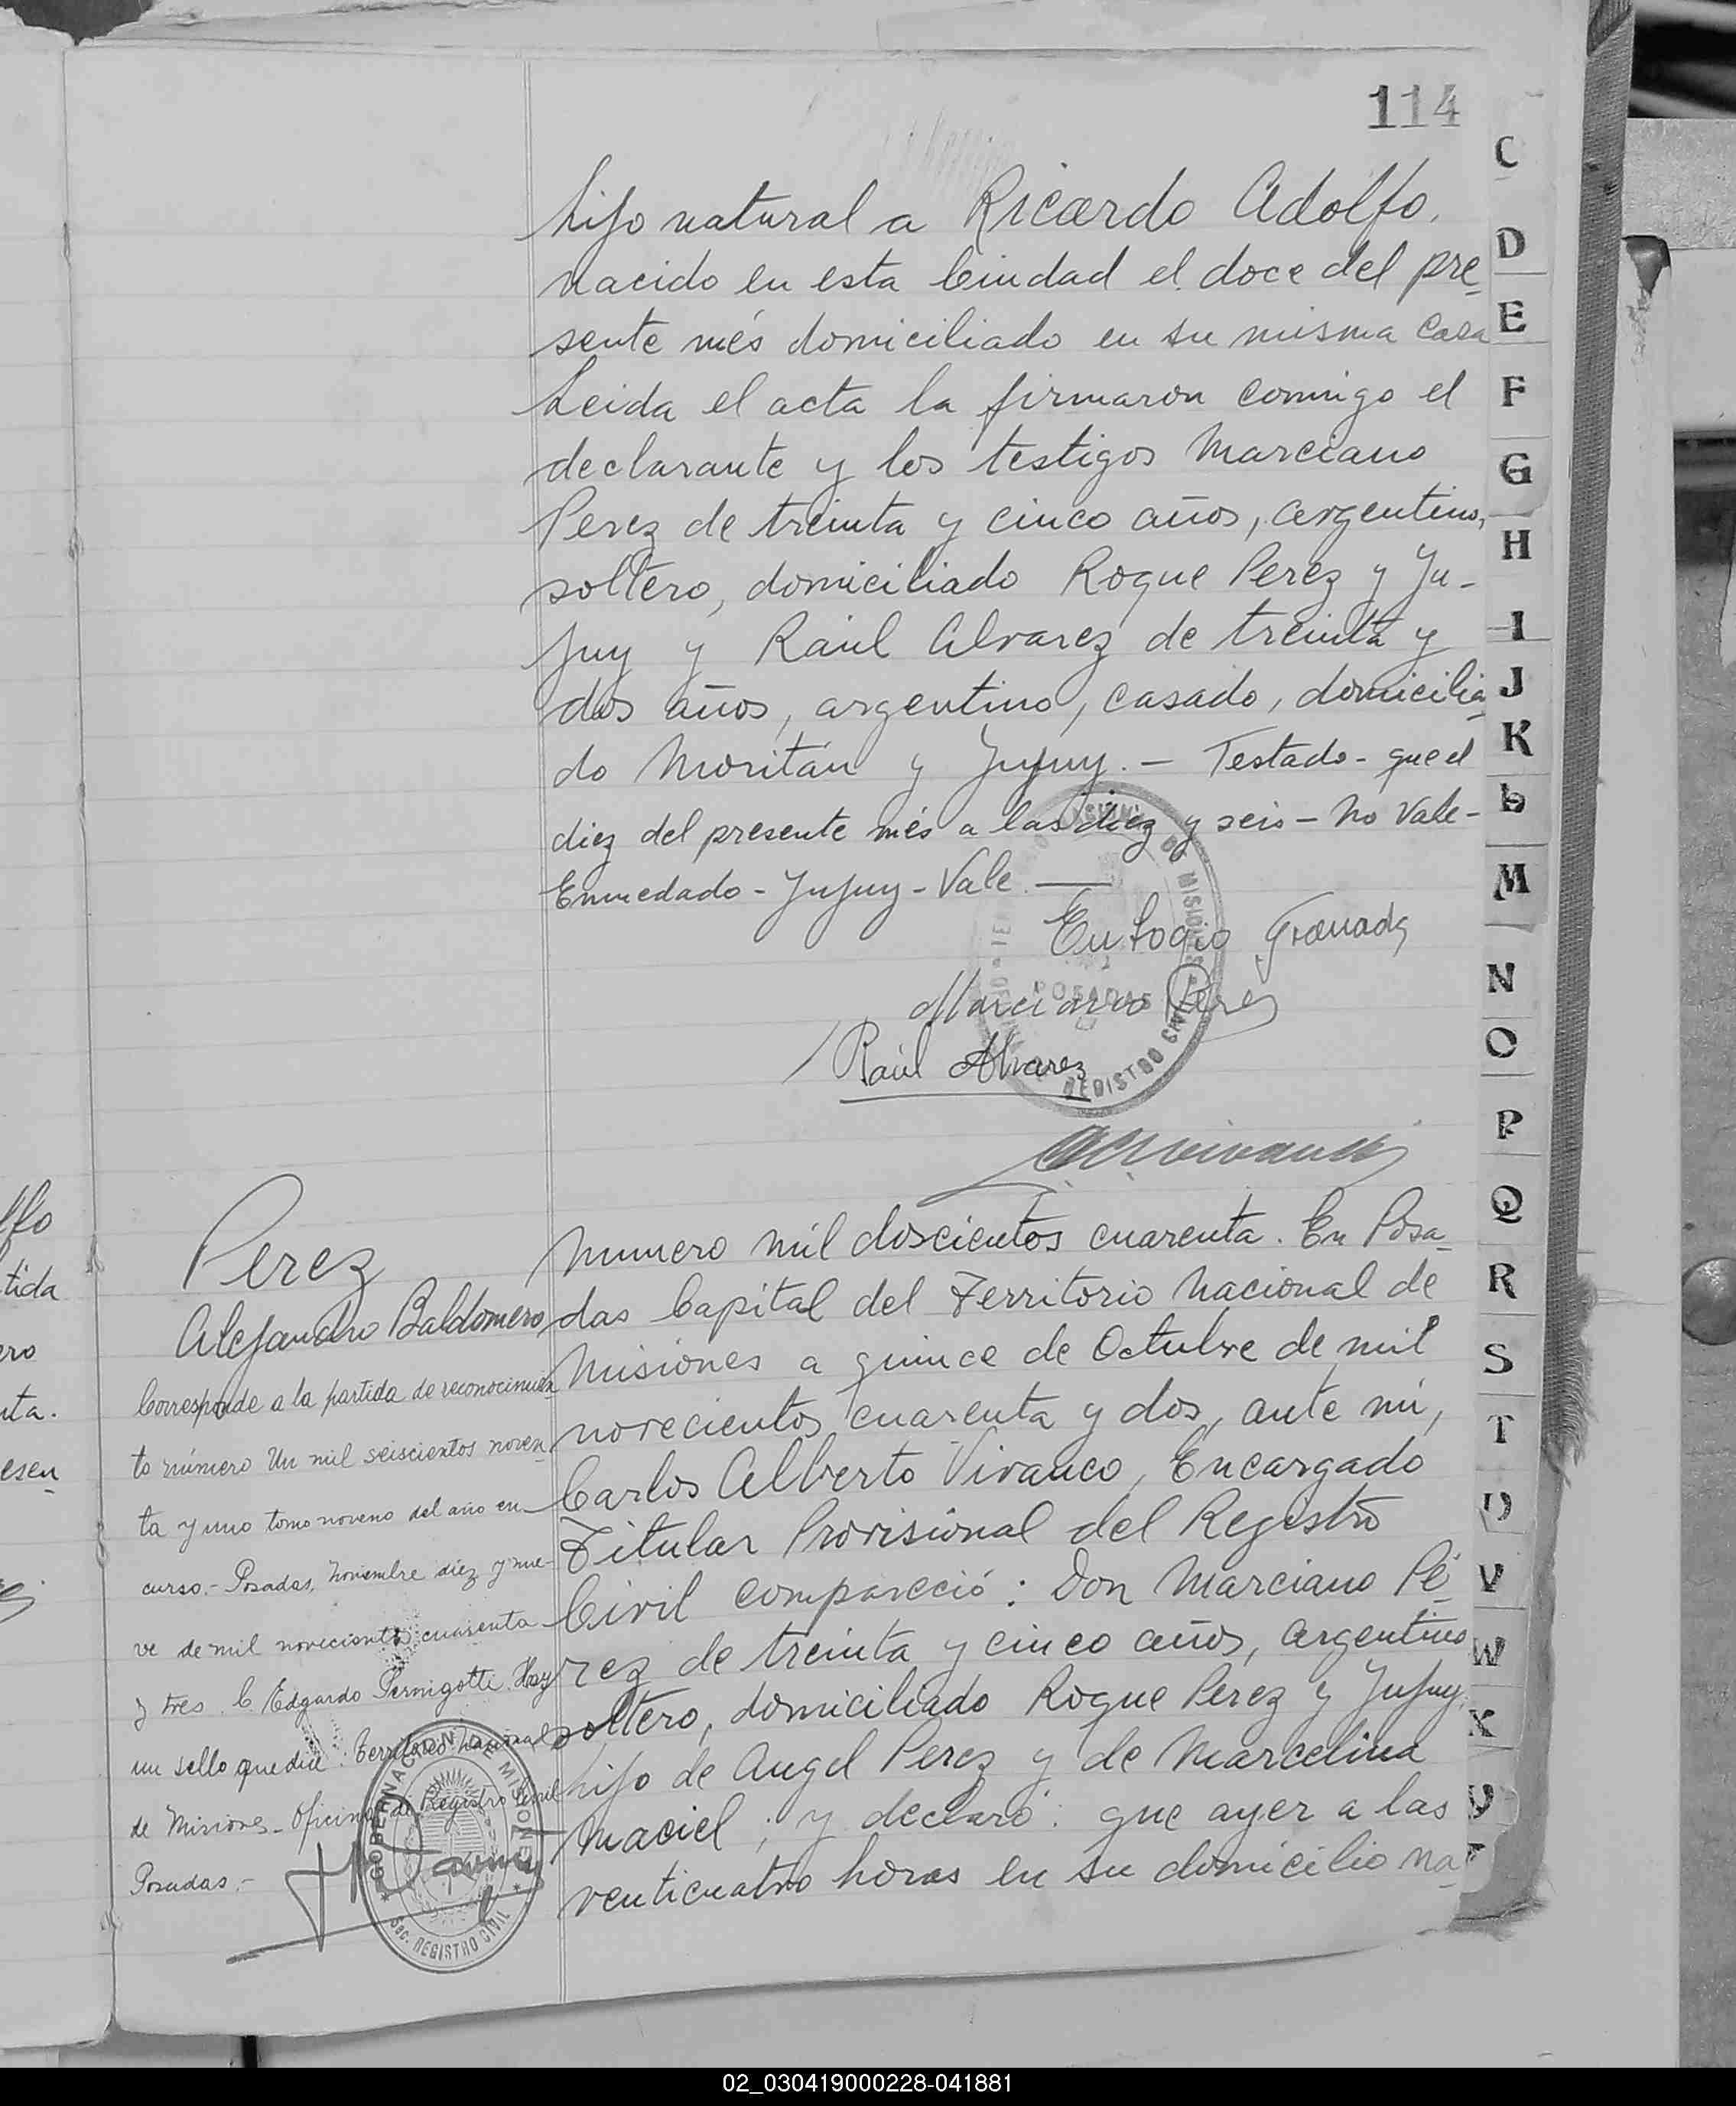 114
hijo natural a Ricardo Adolfo.
nacido en esta Ciudad el doce del pre_
sente més domiciliado en su misma casa
Leida el acta la firmaron comigo el
declarante y los testigos Marciano
Perez de treinta y cinco años, argentino,
soltero, domiciliado Roque Perez y Ju-
juy y Raúl Alvarez de treinta y
dos años, argentino, casado, domicilia
do Moritán y Jujuy. — Testado - que el
diez del presente més a las diez y seis — No Vale -
Enmedado - Jujuy - Vale. —
Eulogio Granada
Marciano Perez
Raúl Alvarez
POSADAS
REGISTRO CIVIL
Perez
Alejandro Baldomero
Corresponde a la partida de reconocimien
to número Un mil seiscientos noven
ta y uno tomo noveno del año en
curso. - Posadas, Noviembre diez y nue-
ve de mil novecientos cuarenta
y tres. C. Edgardo Pernigotti. Hay
un sello que dice: Territorio Nacional
de Misiones - Oficina de Registro Civil
Posadas. -
GOBERNACION DE MISIONES
Sec. REGISTRO CIVIL
Numero mil doscientos cuarenta. En Posa_
das Capital del Territorio Nacional de
Misiones a quince de Octubre de mil
novecientos cuarenta y dos, ante mi,
Carlos Alberto Vivanco, Encargado
Titular Provisional del Registro
Civil compareció: Don Marciano Pé_
rez de treinta y cinco años, argentino
soltero, domiciliado Roque Perez y Jujuy
hijo de Angel Perez y de Marcelina
Maciel; y declaró: que ayer a las
venticuatro horas en su domicilio na_
C
D
E
F
G
H
I
J
K
L
M
N
O
P
Q
R
S
T
U
V
W
X
ffo
tida
ero
nta.
esen
02_030419000228-041881